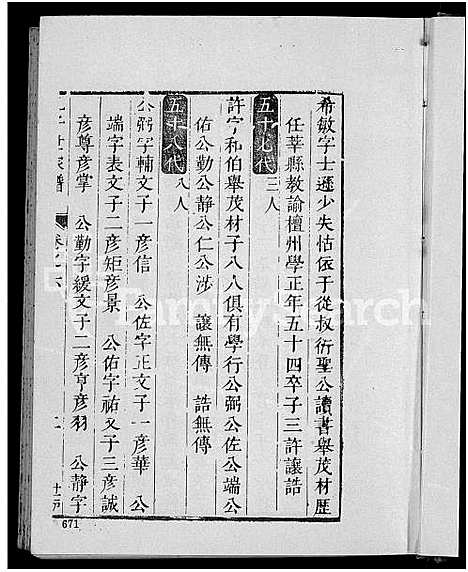 希敏字士遜少失怙依于從叔衍聖公讀書舉茂材歷
任莘縣教諭檀州學正年五十四卒子三許讓誥
五十七代 三人
許字和伯舉茂材子八人俱有學行公弼公佐公端公
佑公勤公静公仁公涉 讓無傳 誥無傳
五十八代 八人
公弼字輔文子一彦信 公佐字正文子一彦華 公
端字表文子二彦矩彦景 公佑字祐文子三彦誠
彦尊彦掌 公勤字緩文子二彦亨彦羽 公静字
世家譜 卷之六
671